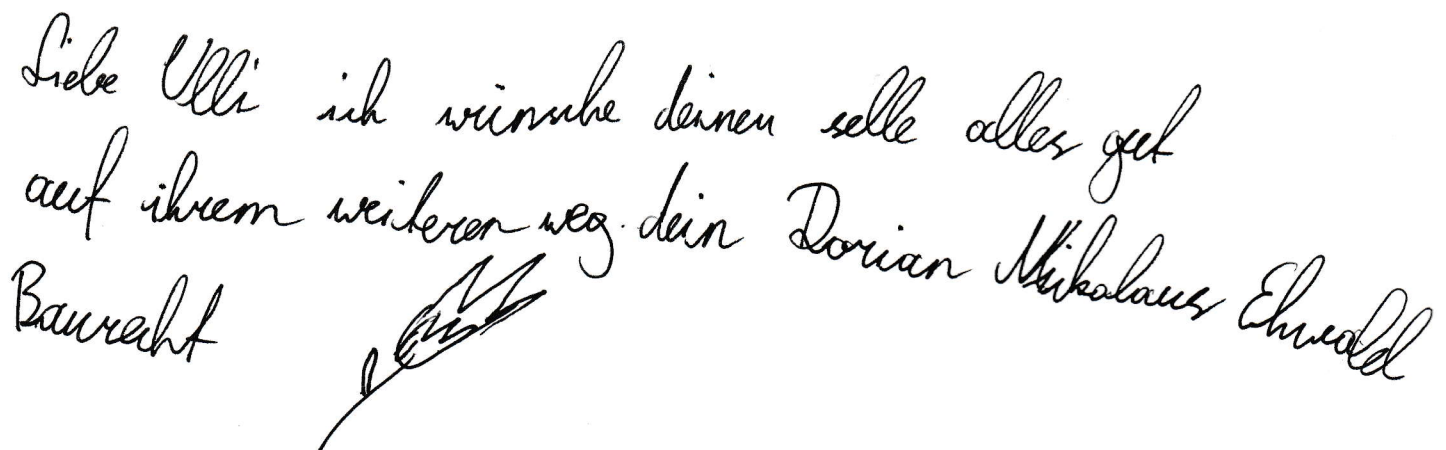 Liebe Ulli ich wünsche deinneu selle alles gut
auf ihrem weiteren weg. dein Dorian Nikolaus Ehwald
Baurecht